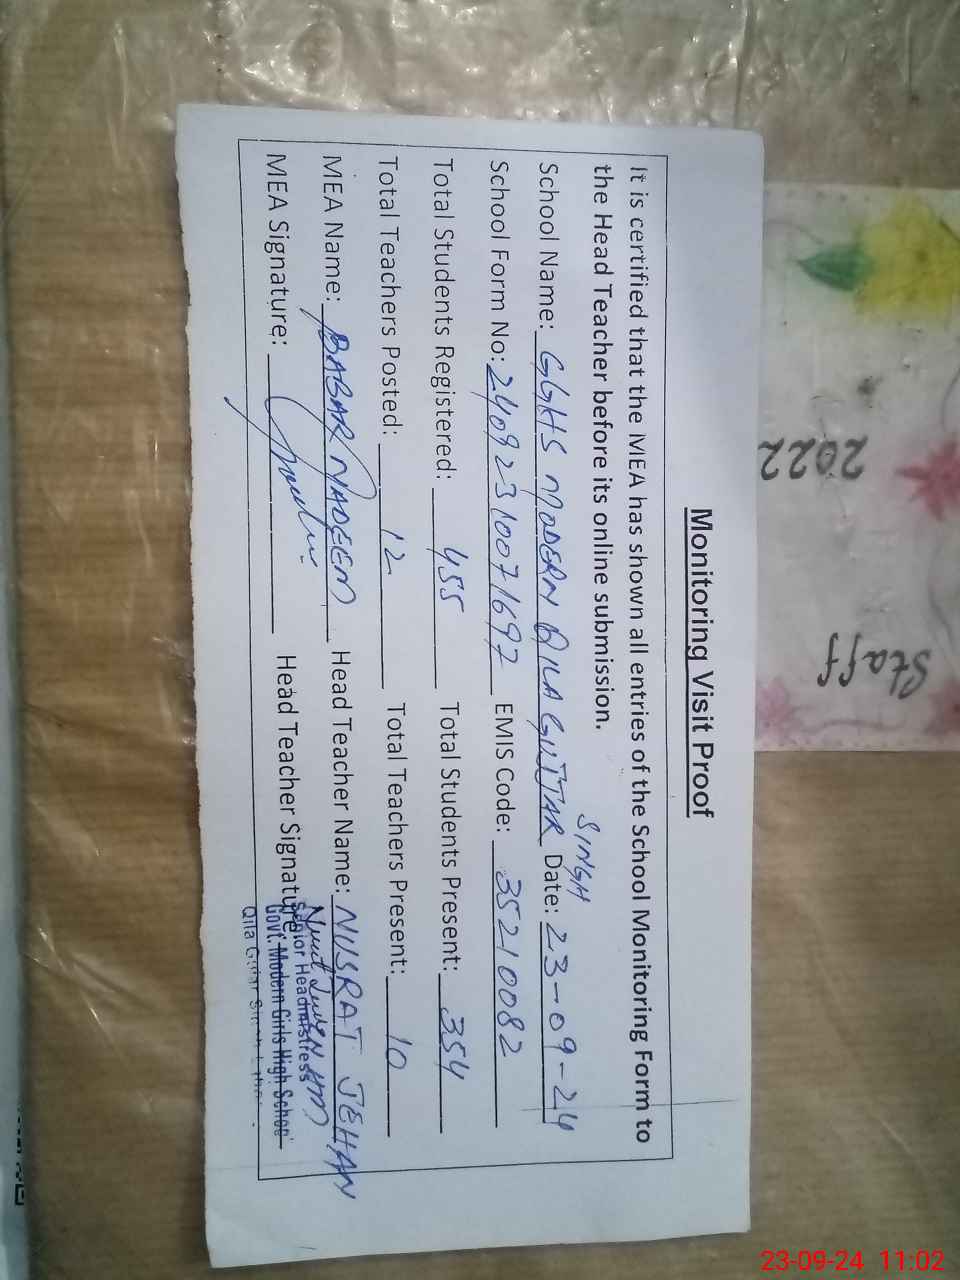 Monitoring Visit Proof
It is certified that the MEA has shown all entries of the School Monitoring Form to
the Head Teacher before its online submission.
SINGH
School Name: GGHS MODERN QILA GUJJAR Date: 23-09-24
School Form No: 24092310071697 EMIS Code: 35210082
Total Students Registered: 455 Total Students Present: 354
Total Teachers Posted: 12 Total Teachers Present: 10
MEA Name: BABAR NADEEM Head Teacher Name: NUSRAT JEHAN
MEA Signature: Head Teacher Signature
Senior Headmistress
Govt. Modern Girls High School
Qila Gujjar Singh
2022
Staff
23-09-24 11:02